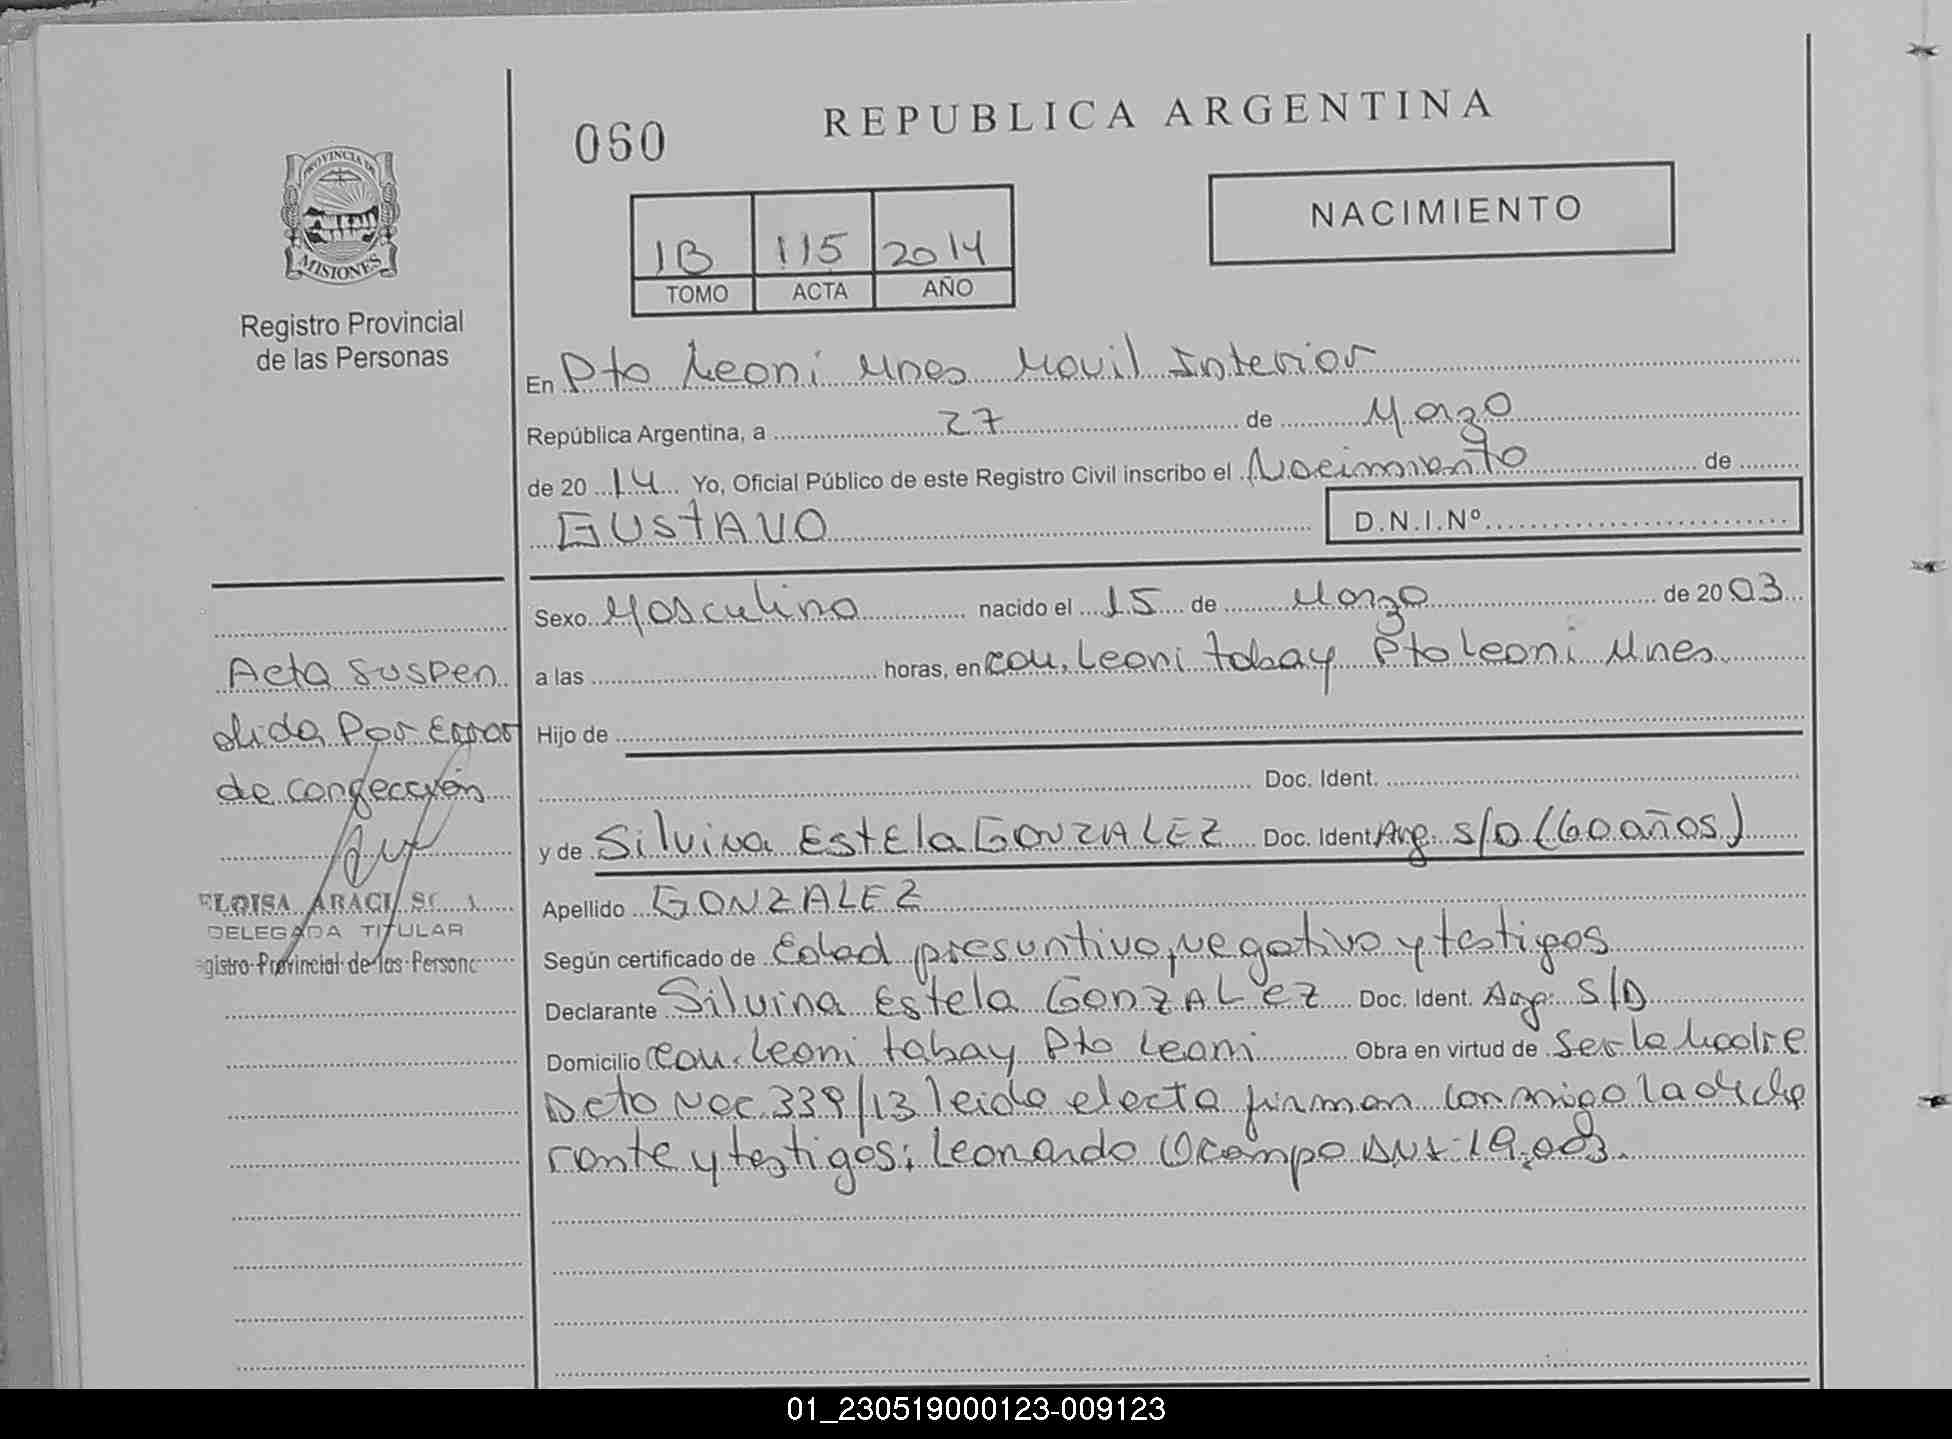 REPUBLICA ARGENTINA
060
NACIMIENTO
PROVINCIA DE
MISIONES
1B 115 2014
TOMO ACTA AÑO
Registro Provincial
de las Personas
En Pto Leoni Mnes Movil Interior
República Argentina, a 27 de Marzo
de 2014 Yo, Oficial Público de este Registro Civil inscribo el Nacimiento de
GUSTAVO D.N.I.Nº
Sexo Masculino nacido el 15 de Marzo de 2003
a las horas, en Com. Leoni tabay Pto Leoni Mnes
Hijo de
Doc. Ident.
y de Silvina Estela GONZALEZ Doc. Ident Arg. S/D (60 años)
Apellido GONZALEZ
Según certificado de Edad presuntiva, negativo y testigos
Declarante Silvina Estela GonzALez Doc. Ident. Arg. S/D
Domicilio Com. Leoni tabay Pto Leoni Obra en virtud de Ser la Madre
Dcto Nac 339/13 leida el acta firman conmigo la decla
rante y testigos; Leonardo Ocampo DNI 19.003.
Acta Suspen
dida Por Error
de congección
ELOISA ARACI
DELEGADA TITULAR
gistro Provincial de las Persona
01_230519000123-009123